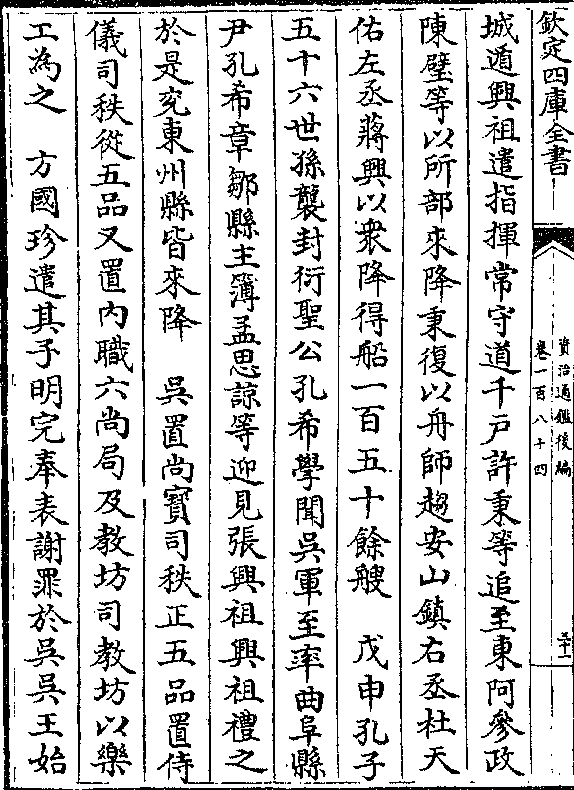 欽定四庫全書
資治通鑑後編
卷一百八十四
三十一
城遁興祖遣指揮常守道千户許秉等追至東阿參政
陳璧等以所部來降秉復以舟師趨安山鎮右丞杜天
佑左丞蔣興以衆降得船一百五十餘艘　戊申孔子
五十六世孫襲封衍聖公孔希學聞吳軍至率曲阜縣
尹孔希章鄒縣主簿孟思諒等迎見張興祖興祖禮之
於是兖東州縣皆來降　吳置尚寶司秩正五品置侍
儀司秩從五品又置内職六尚局及教坊司教坊以樂
工為之　方國珍遣其子明完奉表謝罪於吳吳王始